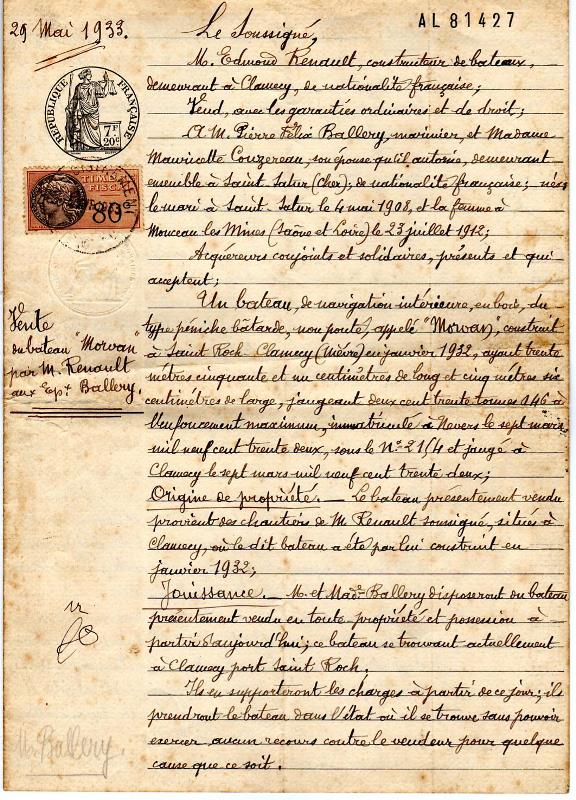 29 Mai 1933.
AL 81427
Le Soussigné,
M. Edmond Renault, constructeur de bateaux,
demeurant à Clamecy, de nationalité française;
Vend, avec les garanties ordinaires et de droit;
A M. Pierre Félix Ballery, marinier, et Madame
Mauricette Couzereau, son épouse qu'il autorise, demeurant
ensemble à Saint-Satur (Cher); de nationalité française; nés
le mari à Saint-Satur le 4 mai 1908, et la femme à
Monceau les Mines (Saône et Loire) le 23 juillet 1912;
Acquéreurs conjoints et solidaires, présents et qui
acceptent;
Un bateau, de navigation intérieure, en bois, du
type péniche bâtarde, non ponté, appelé "Morvan", construit
à Saint Roch-Clamecy (Nièvre) en janvier 1932, ayant trente
mètres cinquante et un centimètres de long et cinq mètres six
centimètres de large, jaugeant deux cent trente tonnes 946 à
l'enfoncement maximum, immatriculé à Nevers le sept mars
mil neuf cent trente deux, sous le N° 2154 et jaugé à
Clamecy le sept mars mil neuf cent trente deux;
Origine de propriété. — Le bateau présentement vendu
provient des chantiers de M. Renault soussigné, situés à
Clamecy, où le dit bateau a été par lui construit en
janvier 1932;
Jouissance. — M. et Made Ballery disposeront du bateau
présentement vendu en toute propriété et possession à
partir d'aujourd'hui; ce bateau se trouvant actuellement
à Clamecy port Saint Roch.
Ils en supporteront les charges à partir de ce jour; ils
prendront le bateau dans l'état où il se trouve sans pouvoir
exercer aucun recours contre le vendeur pour quelque
cause que ce soit.
RÉPUBLIQUE FRANÇAISE
7F
20c
TIMBRE
FISCAL
80
Vente
du bateau "Morvan"
par M. Renault
aux Epx Ballery
M. Ballery.